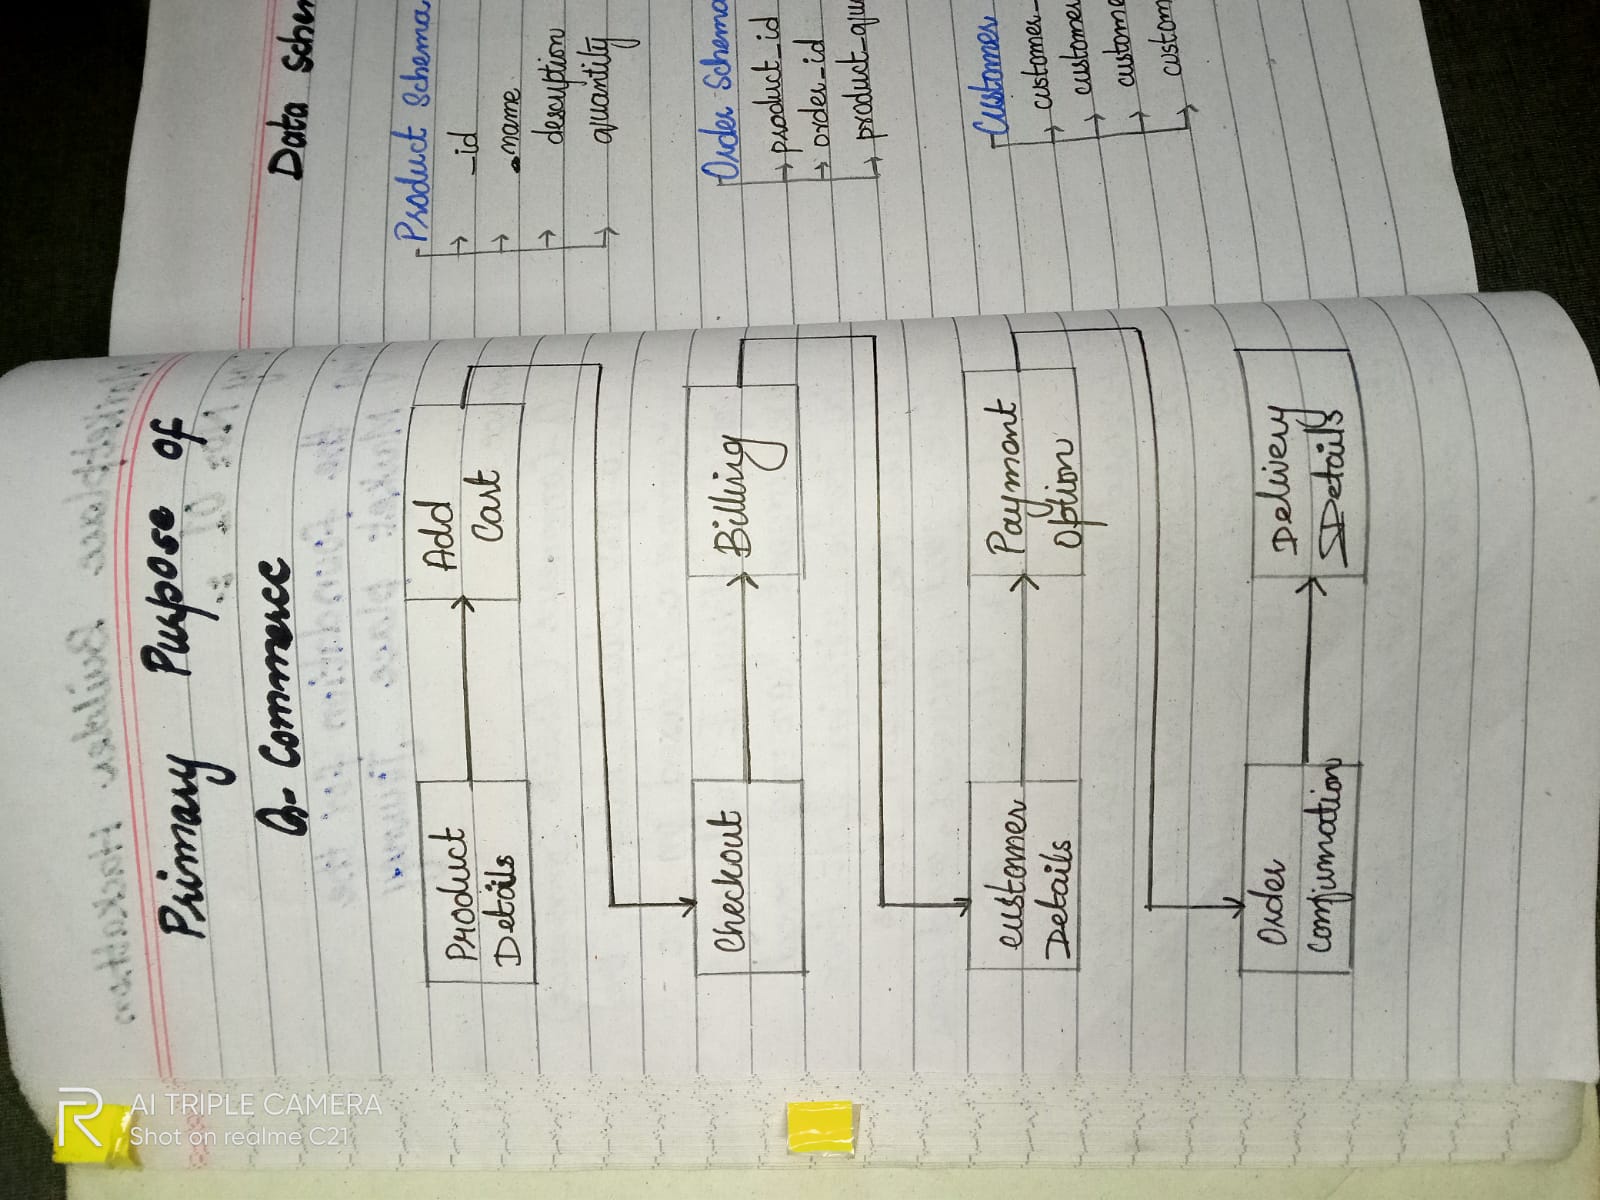 Primary Purpose of
Q-Commerce
Product
Details
Add
Cart
Checkout
Billing
customer
Details
Payment
option
Order
Confirmation
Delivery
Details
Data Schem
Product Schema
_id
name
description
quantity
Order Schema
product_id
order_id
product_qu
Customer
customer_
customer
custome
custom
AI TRIPLE CAMERA
Shot on realme C21